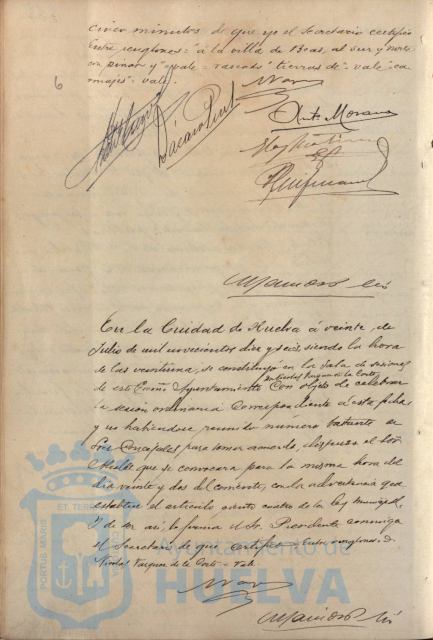 cinco minutos de que yo el Secretario certifico
Entre renglones = "á la villa de Beas, al sur y norte
con piñar y" vale = "tierras de" - vale - "ca
" - vale.
6
Antº Moran
En la Ciudad de Huelva á veinte, de
Julio de mil novecientos diez y seis, siendo la hora
de las veintiuna, se constituyó en la Sala de sesiones
Nicolas Vazquez de la Corte,
de este Excmo Ayuntamiento con objeto de celebrar
la sesion ordinaria correspondiente á esta fecha
y no habiendose reunido número bastante de
Sres Concejales para tomar acuerdo, dispuso el Sor
Alcalde que se convocara para la misma hora del
dia veinte y dos del corriente, con la advertencia que
establece el articulo ciento cuatro de la ley municipal,
Y de ser asi, la firma el Sr. Presidente conmigo
el Secretario de que certifico = Entre renglones = D.
Nicolas Vazquez de la Corte - Vale.
PORTUS MARIS ET TERRAE CUSTODIA
Ayuntamiento de
HUELVA